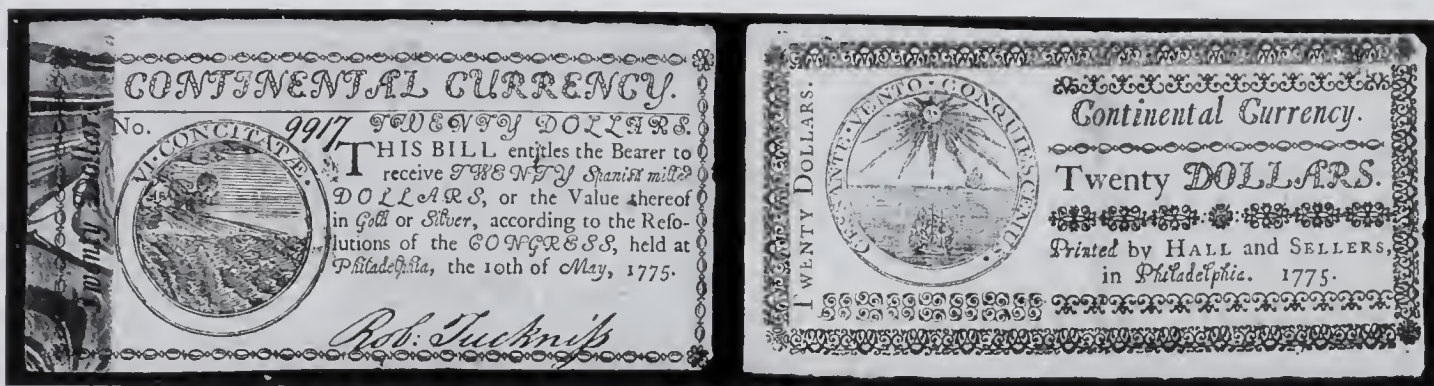 Twenty Dollars
CONTINENTAL CURRENCY.
No. 9917 TWENTY DOLLARS.
VI·CONCITATÆ.
THIS BILL entitles the Bearer to
receive TWENTY Spanish milled
DOLLARS, or the Value thereof
in Gold or Silver, according to the Reso-
lutions of the CONGRESS, held at
Philadelphia, the 10th of May, 1775.
Rob: Tuckniſs
TWENTY DOLLARS.
CESSANTE·VENTO·CONQUIESCEMUS·
Continental Currency.
Twenty DOLLARS.
Printed by HALL and SELLERS,
in Philadelphia. 1775.